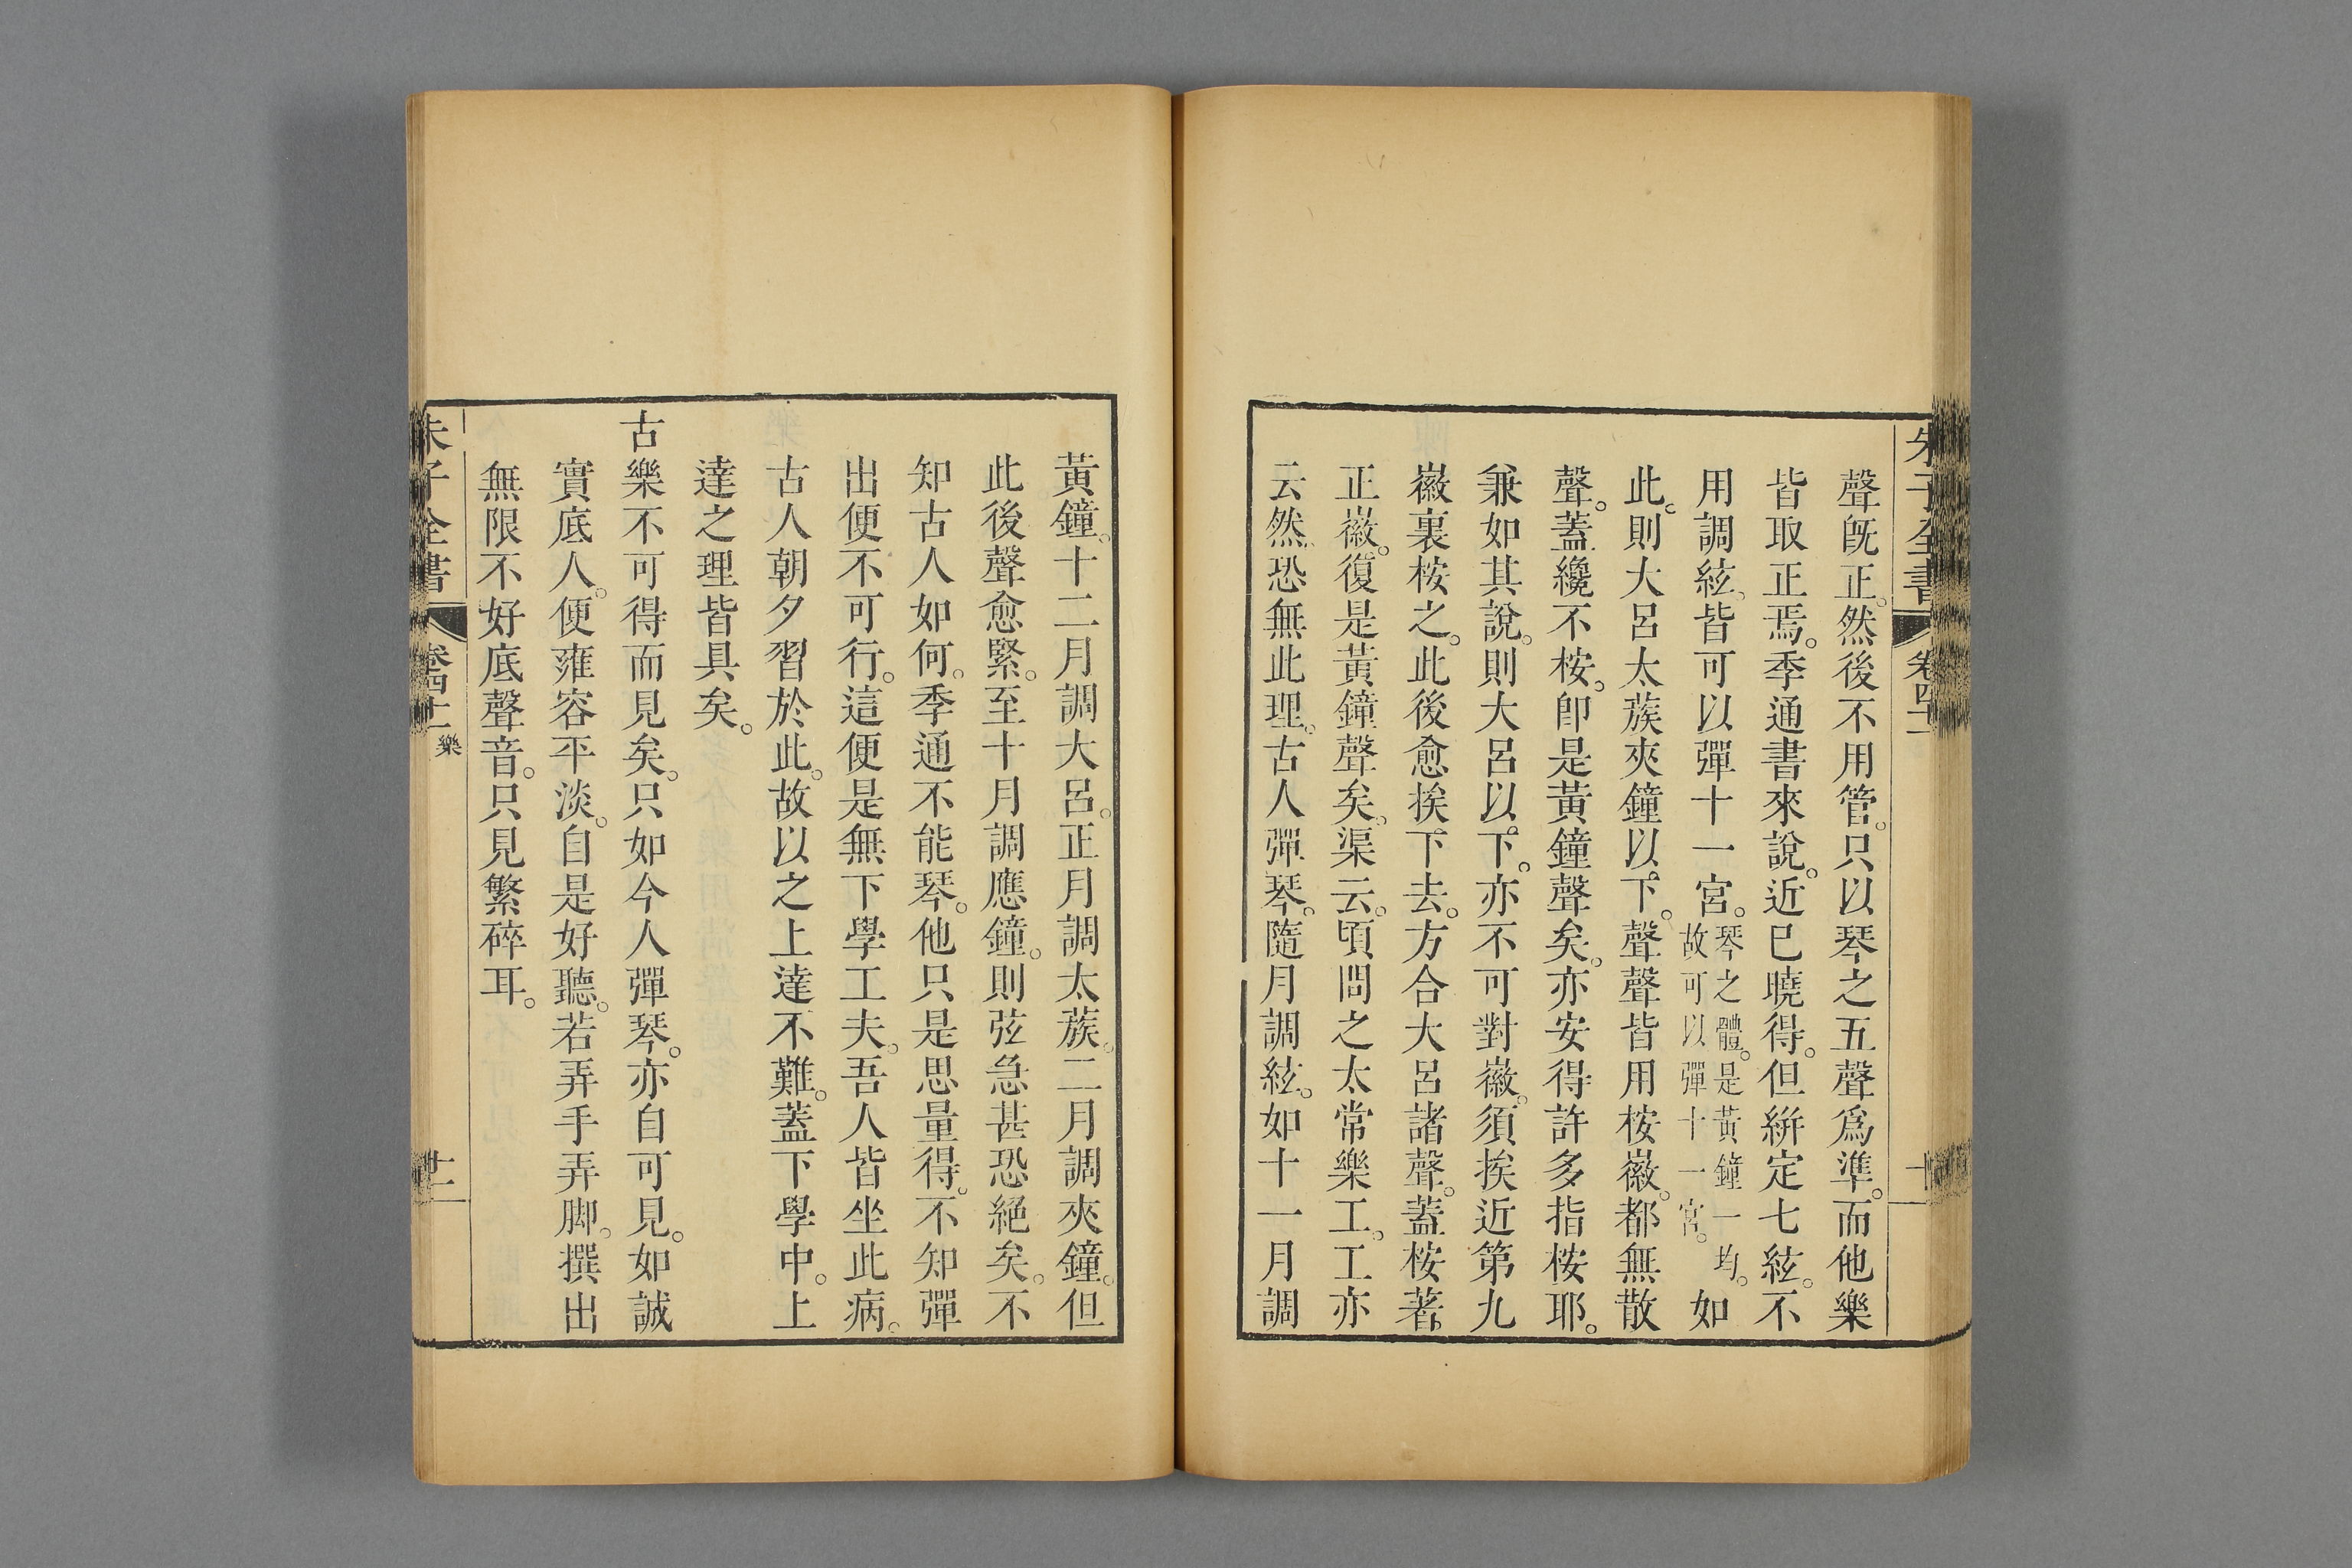 朱子全書 卷四十一
聲旣正。然後不用管。只以琴之五聲爲準。而他樂
皆取正焉。季通書來說。近已曉得。但絣定七絃。不
用調絃。皆可以彈十一宮。琴之體。是黃鐘一均。故可以彈十一宮。如
此。則大呂太蔟夾鐘以下。聲聲皆用桉徽。都無散
聲。蓋纔不桉。卽是黃鐘聲矣。亦安得許多指桉耶。
兼如其說。則大呂以下。亦不可對徽。須挨近第九
徽裏桉之。此後愈挨下去。方合大呂諸聲。蓋桉著
正徽。復是黃鐘聲矣。渠云。頃問之太常樂工。工亦
云然。恐無此理。古人彈琴。隨月調絃。如十一月調
黃鐘。十二月調大呂。正月調太蔟。二月調夾鐘。但
此後聲愈緊。至十月調應鐘。則弦急甚恐絕矣。不
知古人如何。季通不能琴。他只是思量得。不知彈
出便不可行。這便是無下學工夫。吾人皆坐此病。
古人朝夕習於此。故以之上達不難。蓋下學中。上
達之理皆具矣。
古樂不可得而見矣。只如今人彈琴。亦自可見。如誠
實底人。便雍容平淡。自是好聽。若弄手弄脚。撰出
無限不好底聲音。只見繁碎耳。
朱子全書 卷四十一 樂